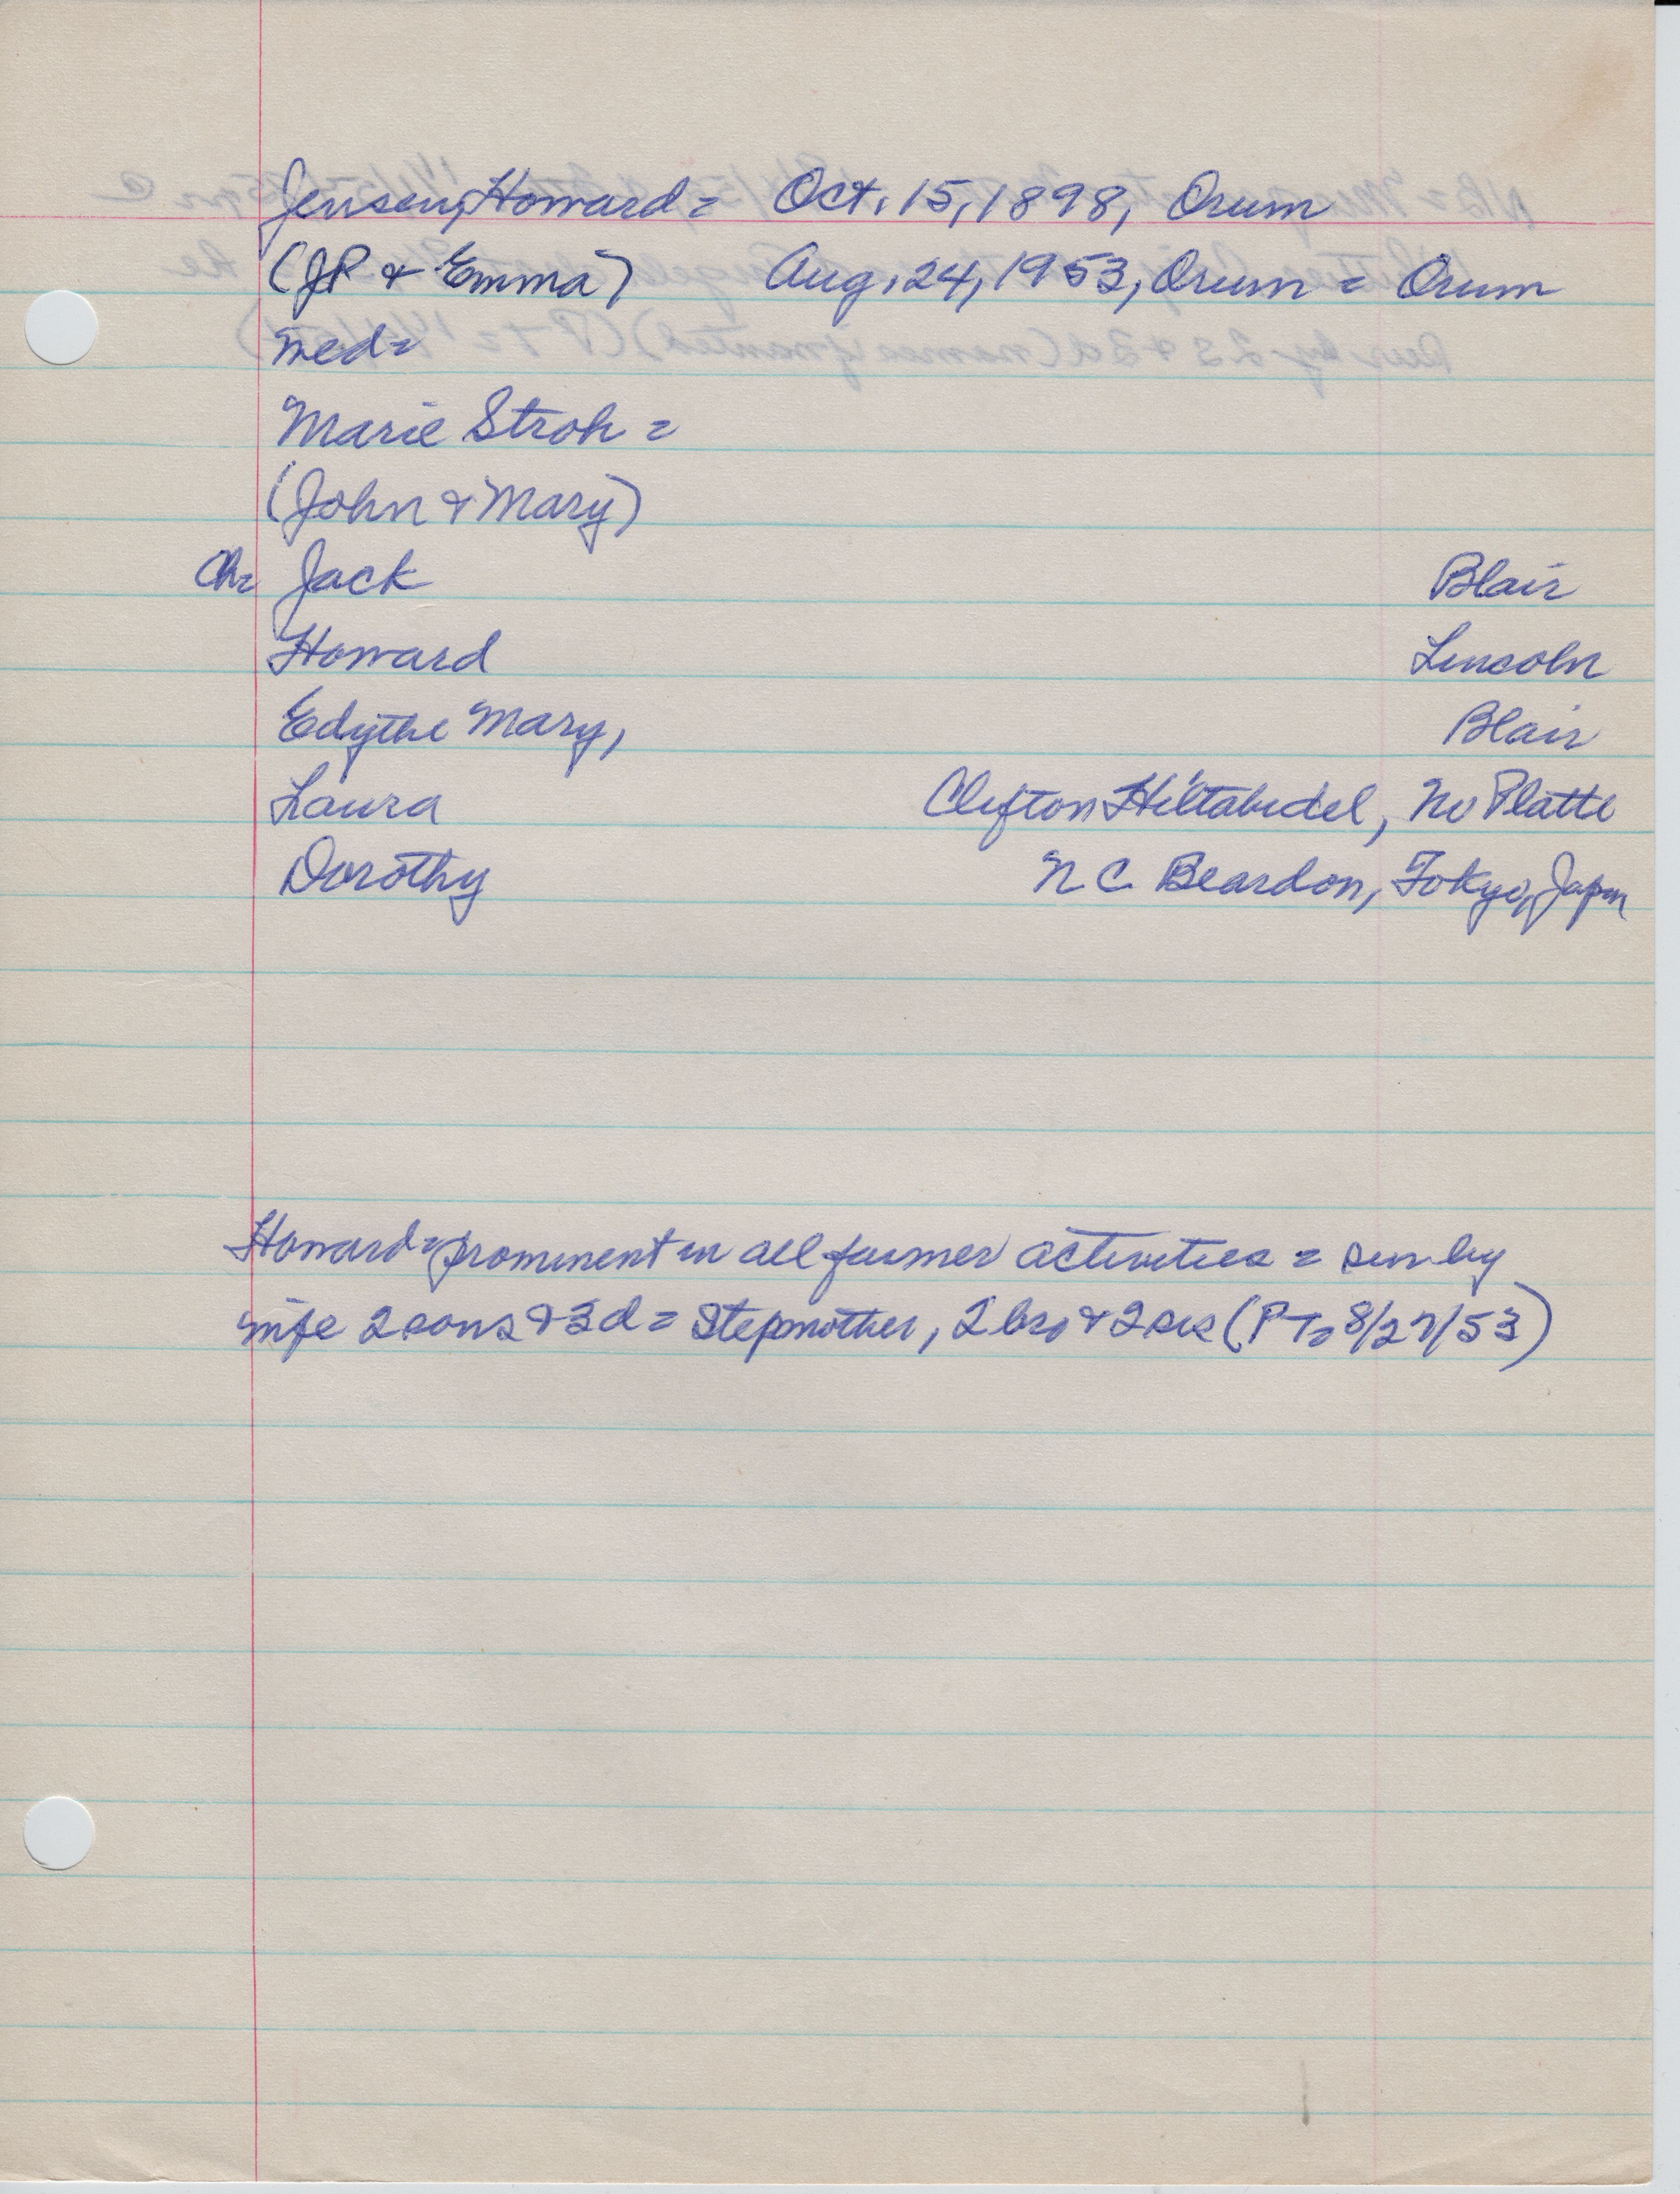 Jensen, Howard = Oct. 15, 1898, Orum
(JP & Emma) Aug. 24, 1953, Orum = Orum
med =
Marie Stroh =
(John & Mary)
Ch= Jack Blair
Howard Lincoln
Edythe Mary, Blair
Laura Clifton Hiltabidel, No Platte
Dorothy N C Beardon, Tokyo, Japan
Howard = prominent in all farmer activities = sur by
wife 2 sons & 3 d = Stepmother, 2 bro & 2 sis (PT= 8/27/53)